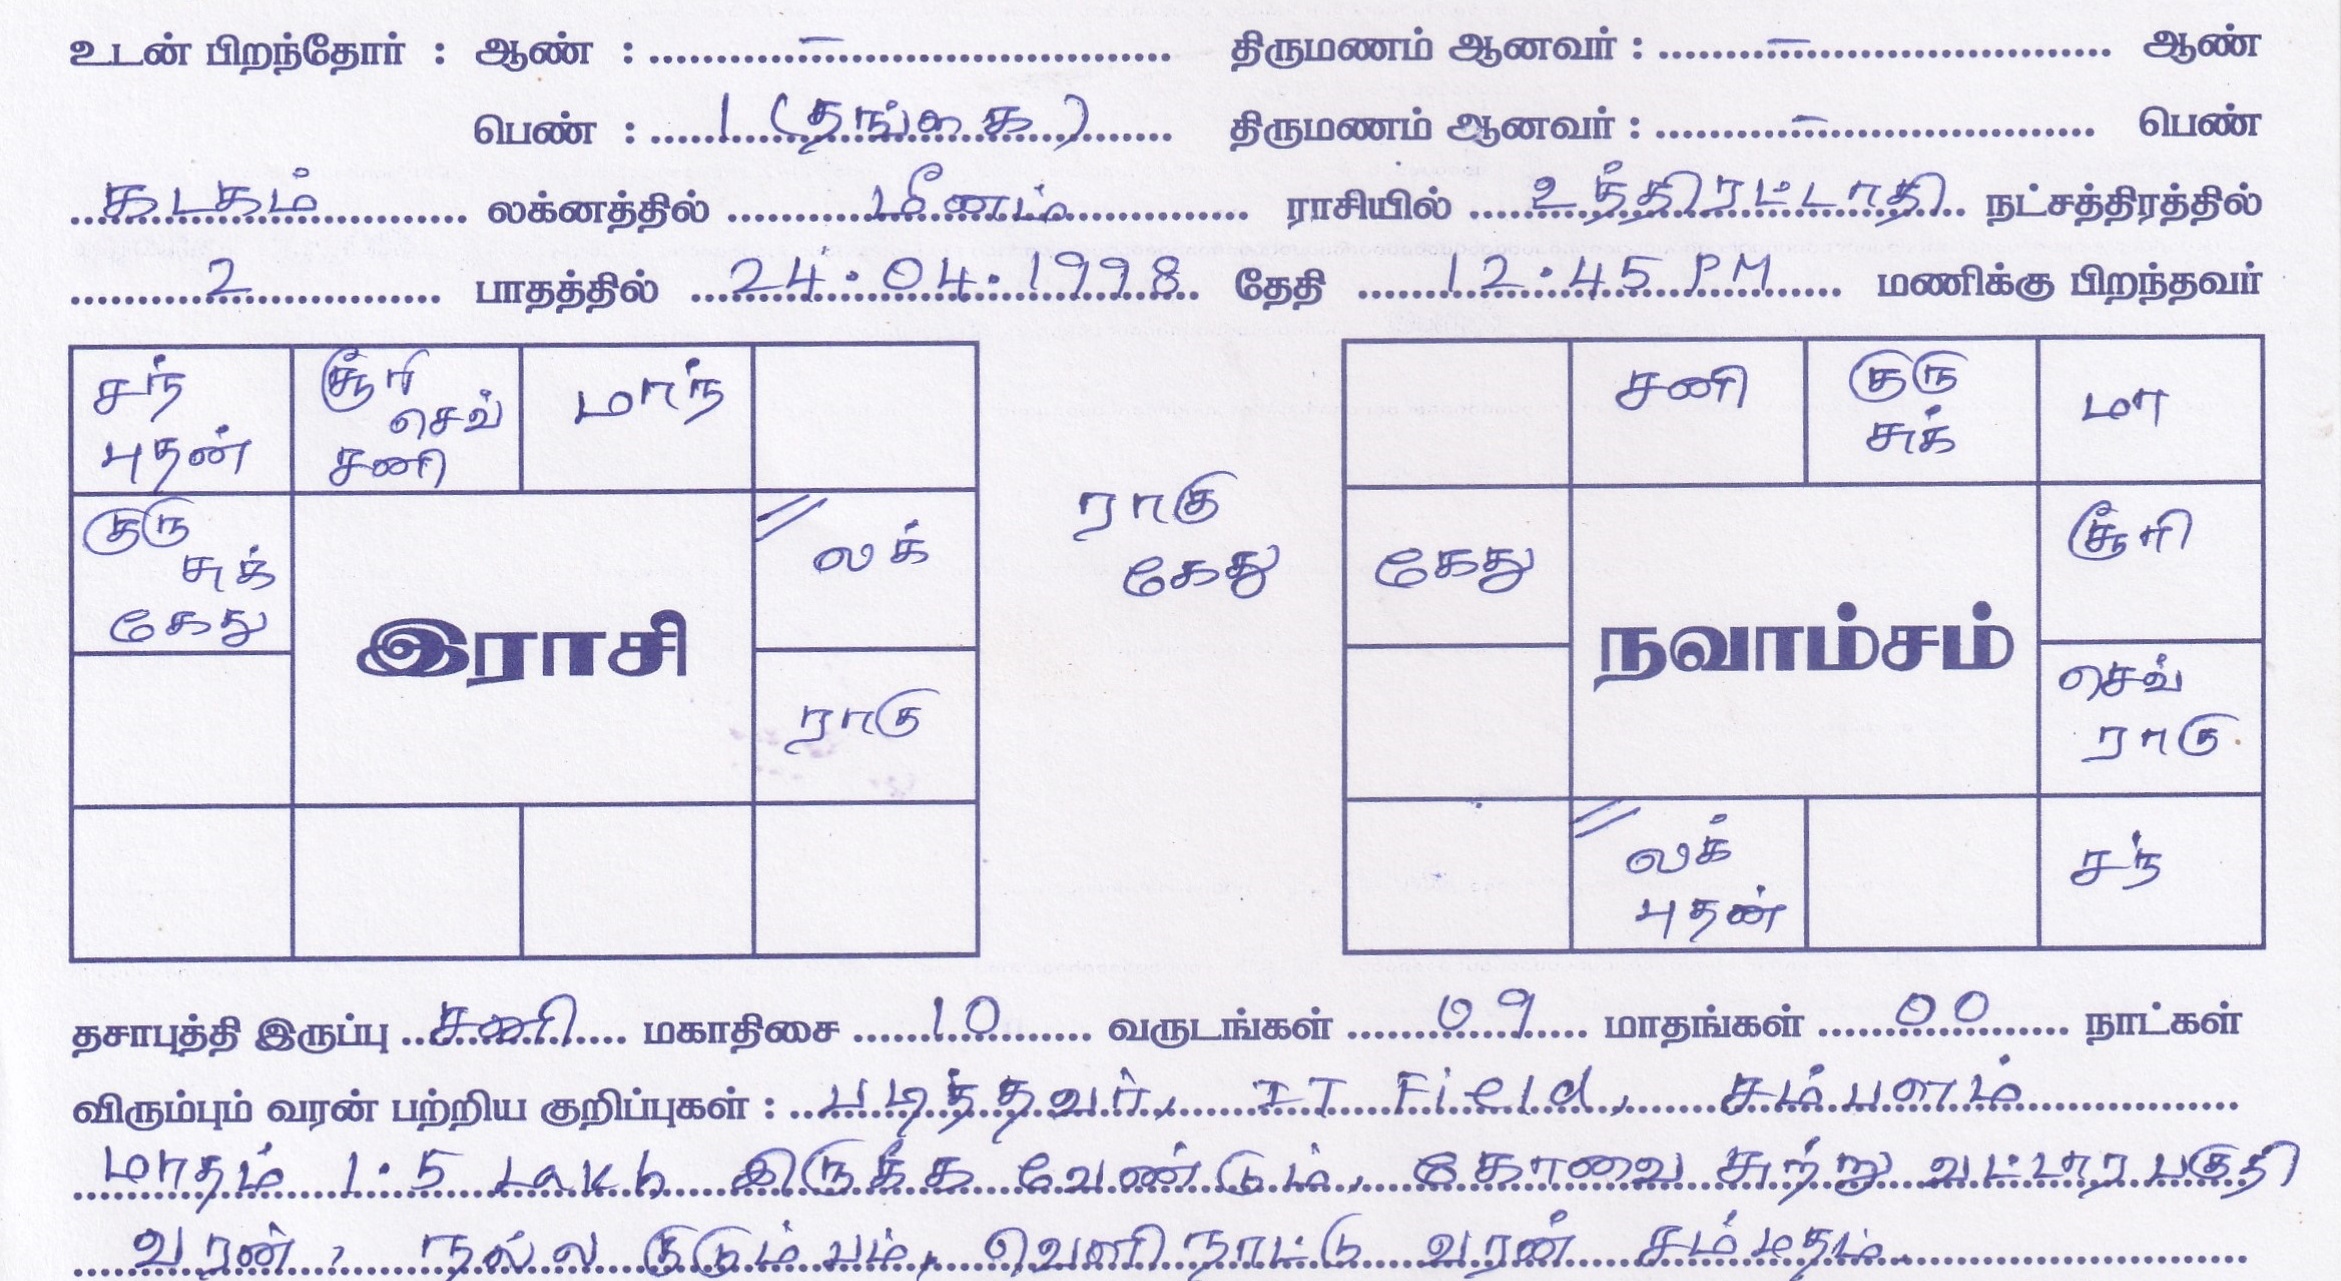 உடன் பிறந்தோர் : ஆண் : – திருமணம் ஆனவர் : – ஆண்
பெண் : 1 (தங்கை) திருமணம் ஆனவர் : – பெண்
கடகம் லக்னத்தில் மீனம் ராசியில் உத்திரட்டாதி நட்சத்திரத்தில்
2 பாதத்தில் 24.04.1998 தேதி 12.45 PM மணிக்கு பிறந்தவர்
சந் சூரி மாந்
செவ்
புதன் சனி
குரு
சுக்
கேது
லக்
இராசி
ராகு
ராகு
கேது
சனி குரு மா
சுக்
கேது சூரி
நவாம்சம்
செவ்
ராகு
லக் சந்
புதன்
தசாபுத்தி இருப்பு சனி மகாதிசை 10 வருடங்கள் 09 மாதங்கள் 00 நாட்கள்
விரும்பும் வரன் பற்றிய குறிப்புகள் : படித்தவர், IT Field, சம்பளம்
மாதம் 1.5 Lakh இருக்க வேண்டும், கோவை சுற்று வட்டார பகுதி
வரன், நல்ல குடும்பம், வெளிநாட்டு வரன் சம்மதம்.